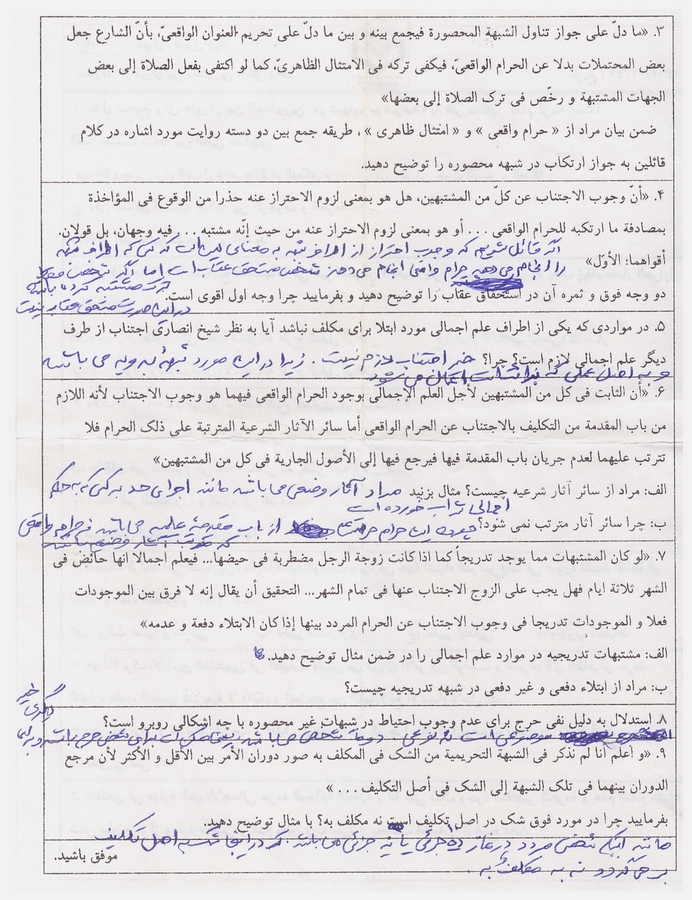 ۳. «ما دلّ على جواز تناول الشبهة المحصورة فيجمع بينه و بين ما دلّ على تحريم العنوان الواقعىّ، بأنّ الشارع جعل
بعض المحتملات بدلا عن الحرام الواقعىّ، فيكفى تركه فى الامتثال الظاهرى، كما لو اكتفى بفعل الصلاة إلى بعض
الجهات المشتبهة و رخّص فى ترك الصلاة إلى بعضها»
ضمن بیان مراد از « حرام واقعی » و « امتثال ظاهری » ، طریقه جمع بین دو دسته روایت مورد اشاره در کلام
قائلین به جواز ارتکاب در شبهه محصوره را توضیح دهید.
۴. «أنّ وجوب الاجتناب عن كلّ من المشتبهين، هل هو بمعنى لزوم الاحتراز عنه حذرا من الوقوع فى المؤاخذة
بمصادفة ما ارتكبه للحرام الواقعى . . . أو هو بمعنى لزوم الاحتراز عنه من حيث إنّه مشتبه . . . فيه وجهان، بل قولان.
اگر قائل شویم که وجوب احتراز از اطراف شبه به معنای این است که کسی که اطراف شبهه
أقواهما: الأوّل»
را انجام می‌دهد حرام واقعی انجام می‌دهد شخص مستحق عقاب است اما اگر شخص فقط
دو وجه فوق و ثمره آن در استحقاق عقاب را توضیح دهید و بفرمایید چرا وجه اول اقوی است.
در این صورت مستحق عقاب نیست
۵. در مواردی که یکی از اطراف علم اجمالی مورد ابتلا برای مکلف نباشد آیا به نظر شیخ انصاری اجتناب از طرف
دیگر علم اجمالی لازم است؟ چرا؟ خیر اجتناب لازم نیست . زیرا در این صورت شبهه بدویه می باشد
و به اصل عملی که برائت است اعمال می‌شود
۶. «أن الثابت فى كل من المشتبهين لأجل العلم الإجمالى بوجود الحرام الواقعى فيهما هو وجوب الاجتناب لأنه اللازم
من باب المقدمة من التكليف بالاجتناب عن الحرام الواقعى أما سائر الآثار الشرعية المترتبة على ذلک الحرام فلا
تترتب عليهما لعدم جريان باب المقدمة فيها فيرجع فيها إلى الأصول الجارية فى كل من المشتبهين»
الف: مراد از سائر آثار شرعیه چیست؟ مثال بزنید مراد آثار وضعی می باشد مانند اجرای حد بر کسی که به حکم
اجمالی شراب خورده است
ب: چرا سائر آثار مترتب نمی شود؟ چون این حرام از باب مقدمه علمیه می باشد نه حرام واقعی
۷. «لو كان المشتبهات مما يوجد تدريجاً كما اذا كانت زوجة الرجل مضطربة فى حيضها... فيعلم اجمالا انها حائض فى
الشهر ثلاثة ايام فهل يجب على الزوج الاجتناب عنها فى تمام الشهر... التحقيق أن يقال إنه لا فرق بين الموجودات
فعلا و الموجودات تدريجا فى وجوب الاجتناب عن الحرام المردد بينها إذا كان الابتلاء دفعة و عدمه»
الف: مشتبهات تدریجیه در موارد علم اجمالی را در ضمن مثال توضیح دهید.
ب: مراد از ابتلاء دفعی و غیر دفعی در شبهه تدریجیه چیست؟
۸. استدلال به دلیل نفی حرج برای عدم وجوب احتیاط در شبهات غیر محصوره با چه اشکالی روبرو است؟
دیگری خیر
۹. «و اعلم أنا لم نذكر فى الشبهة التحريمية من الشک فى المكلف به صور دوران الأمر بين الأقل و الأكثر لأن مرجع
الدوران بينهما فى تلک الشبهة إلى الشک فى أصل التكليف . . . »
بفرمایید چرا در مورد فوق شک در اصل تکلیف است نه مکلف به؟ با مثال توضیح دهید.
مانند اینکه شخص مردد در نماز ده جزئی یا نه جزئی می باشد که در اینجا شک به اصل تکلیف
بر می گردد نه به مکلف به .
موفق باشید.